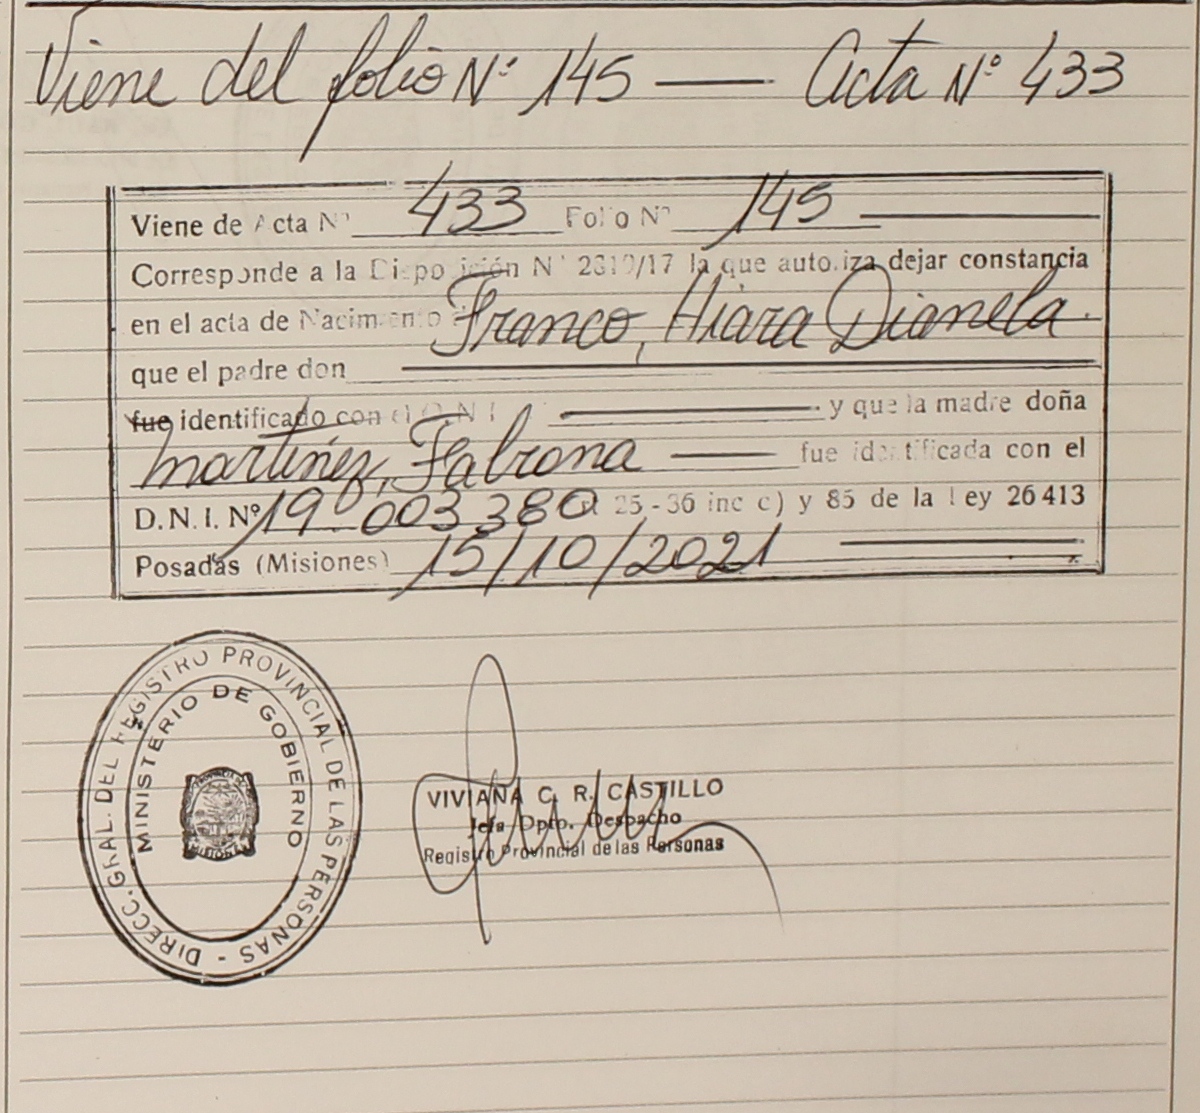 Viene del folio Nº 145 — Acta Nº 433
Viene de Acta Nº 433 Folio Nº 145
Corresponde a la Disposición Nº 2819/17 la que autoriza dejar constancia
en el acta de Nacimiento Franco, Hiara Dianela.
que el padre don
fue identificado con el D.N.I. y que la madre doña
Martinez, Fabiana fue identificada con el
D.N.I. Nº 19.003.380 25-36 inc c) y 85 de la Ley 26413
Posadas (Misiones) 15/10/2021
DIRECC. GRAL. DEL REGISTRO PROVINCIAL DE LAS PERSONAS -
MINISTERIO DE GOBIERNO
MISIONES
VIVIANA C. R. CASTILLO
Jefa Dpto. Despacho
Registro Provincial de las Personas